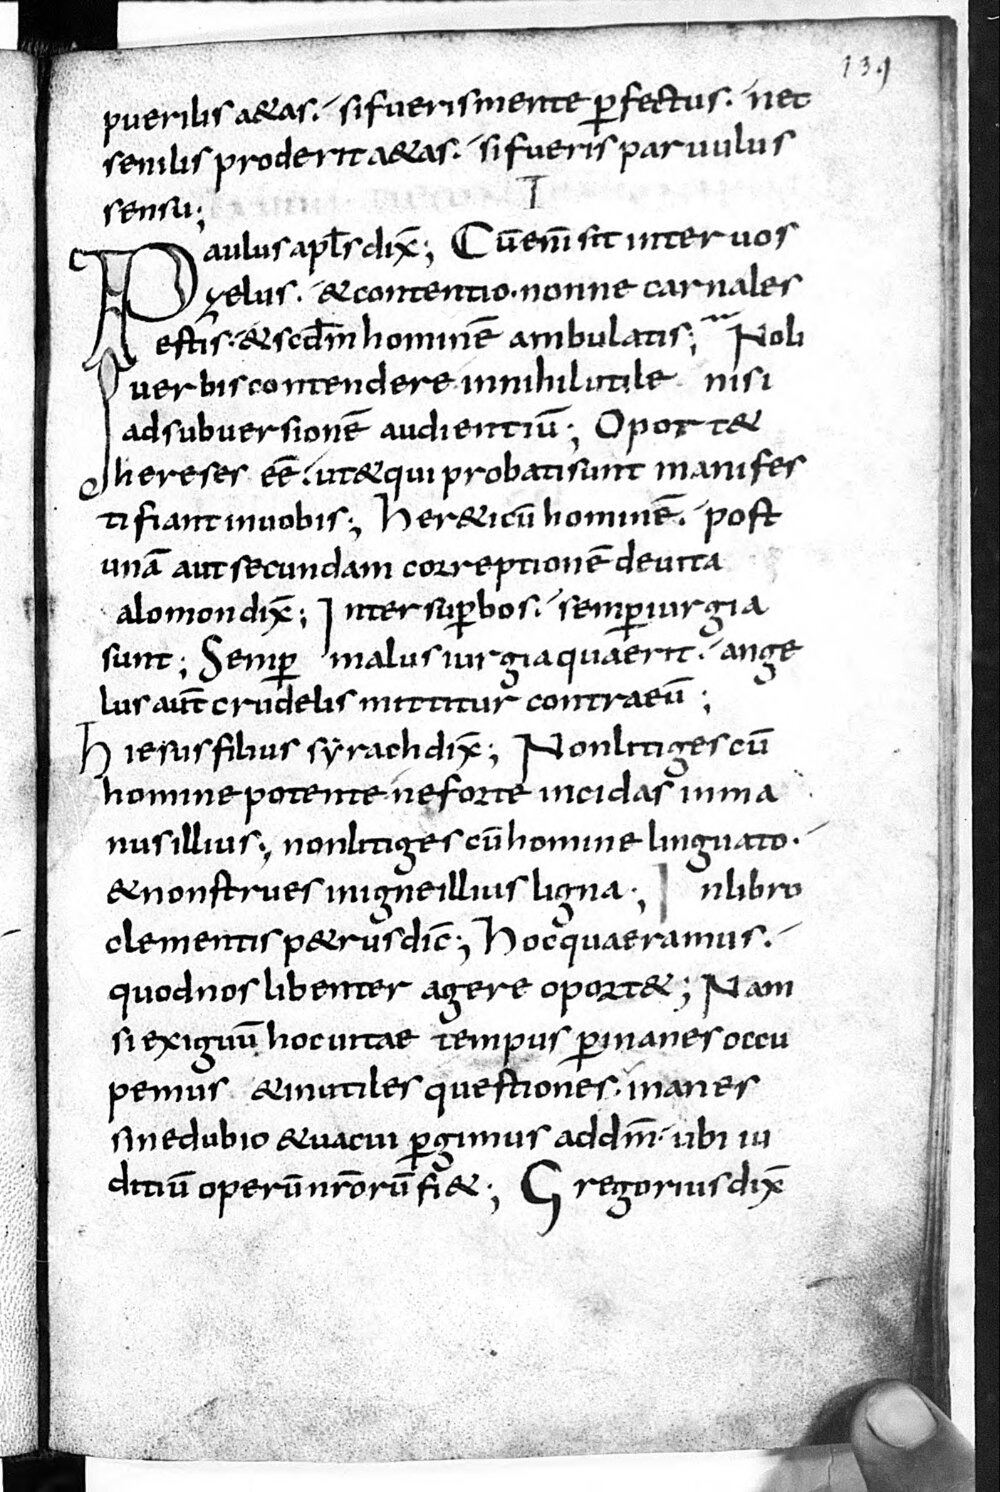 139
puerilis a&as. si fueris mente ꝑfectus. nec
senilis proderit a&as. si fueris paruulus
sensu;
Paulus apl̅s dix̅; Cu̅ eni̅ sit inter uos
zelus. & contentio. nonne carnales
estis. & scd̅m homine̅ ambulatis; Noli
uerbis contendere in nihil utile nisi
ad subuersione̅ audientiu̅; Oport&
hereses ee̅. ut & qui probati sunt manifes
ti fiant in uobis; her&icu̅ homine̅. post
una̅ aut secundam correptione̅ deuita
alomon dix̅; Inter suꝑbos. semꝑ iurgia
sunt; Semꝑ malus iurgia quaerit. ange
lus aut̅ crudelis mittitur contra eu̅;
hiesus filius syrach dix̅; Non litiges cu̅
homine potente ne forte incidas in ma
nus illius; non litiges cu̅ homine linguato.
& non strues in igne illius ligna; In libro
clementis p&rus dic̅; hoc quaeramus.
quod nos libenter agere oport&; Nam
si exiguu̅ hoc uitae tempus ꝑ inanes occu
pemus & inutiles questiones. inanes
sine dubio & uacui ꝑgimus ad dm̅. ubi iu
ditiu̅ operu̅ nr̅oru̅ fi&; Gregorius dix̅